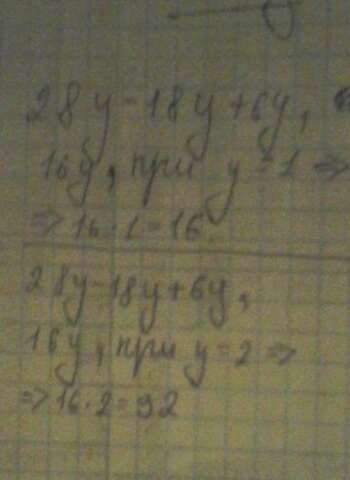 28y-18y+6y,
16y, при y=1 =>
=> 16·1=16.
28y-18y+6y,
16y, при y=2 =>
=> 16·2=92